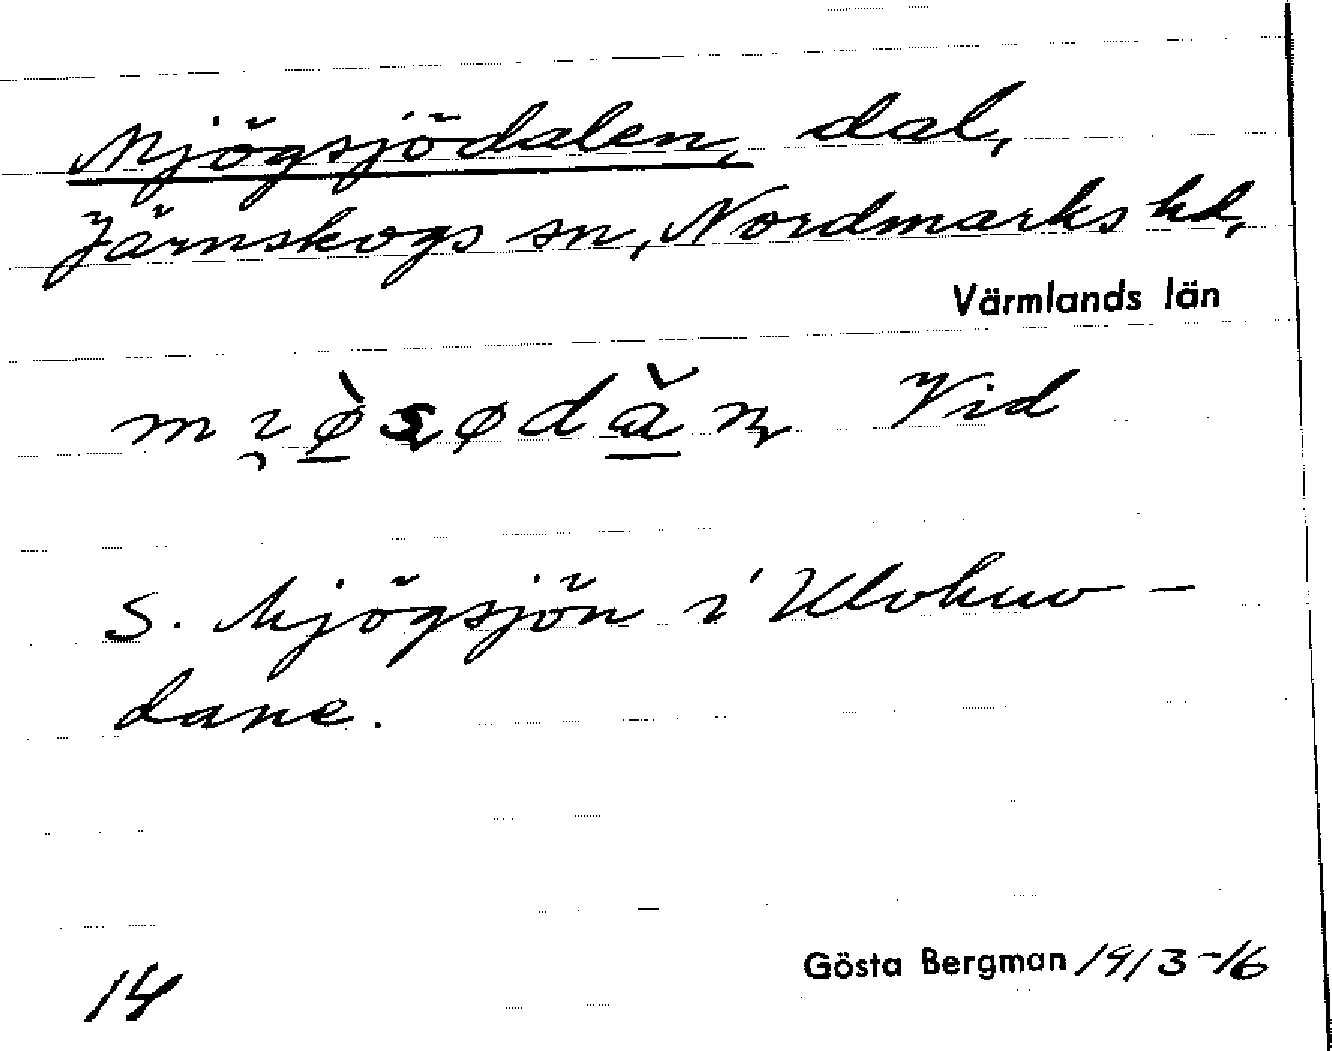 Mjögsjödalen, dal,
Järnskogs sn, Nordmarks hd,
Värmlands län
Vid
S. Mjögsjön i Klohuv-
dane.
Gösta Bergman 1913-16
14